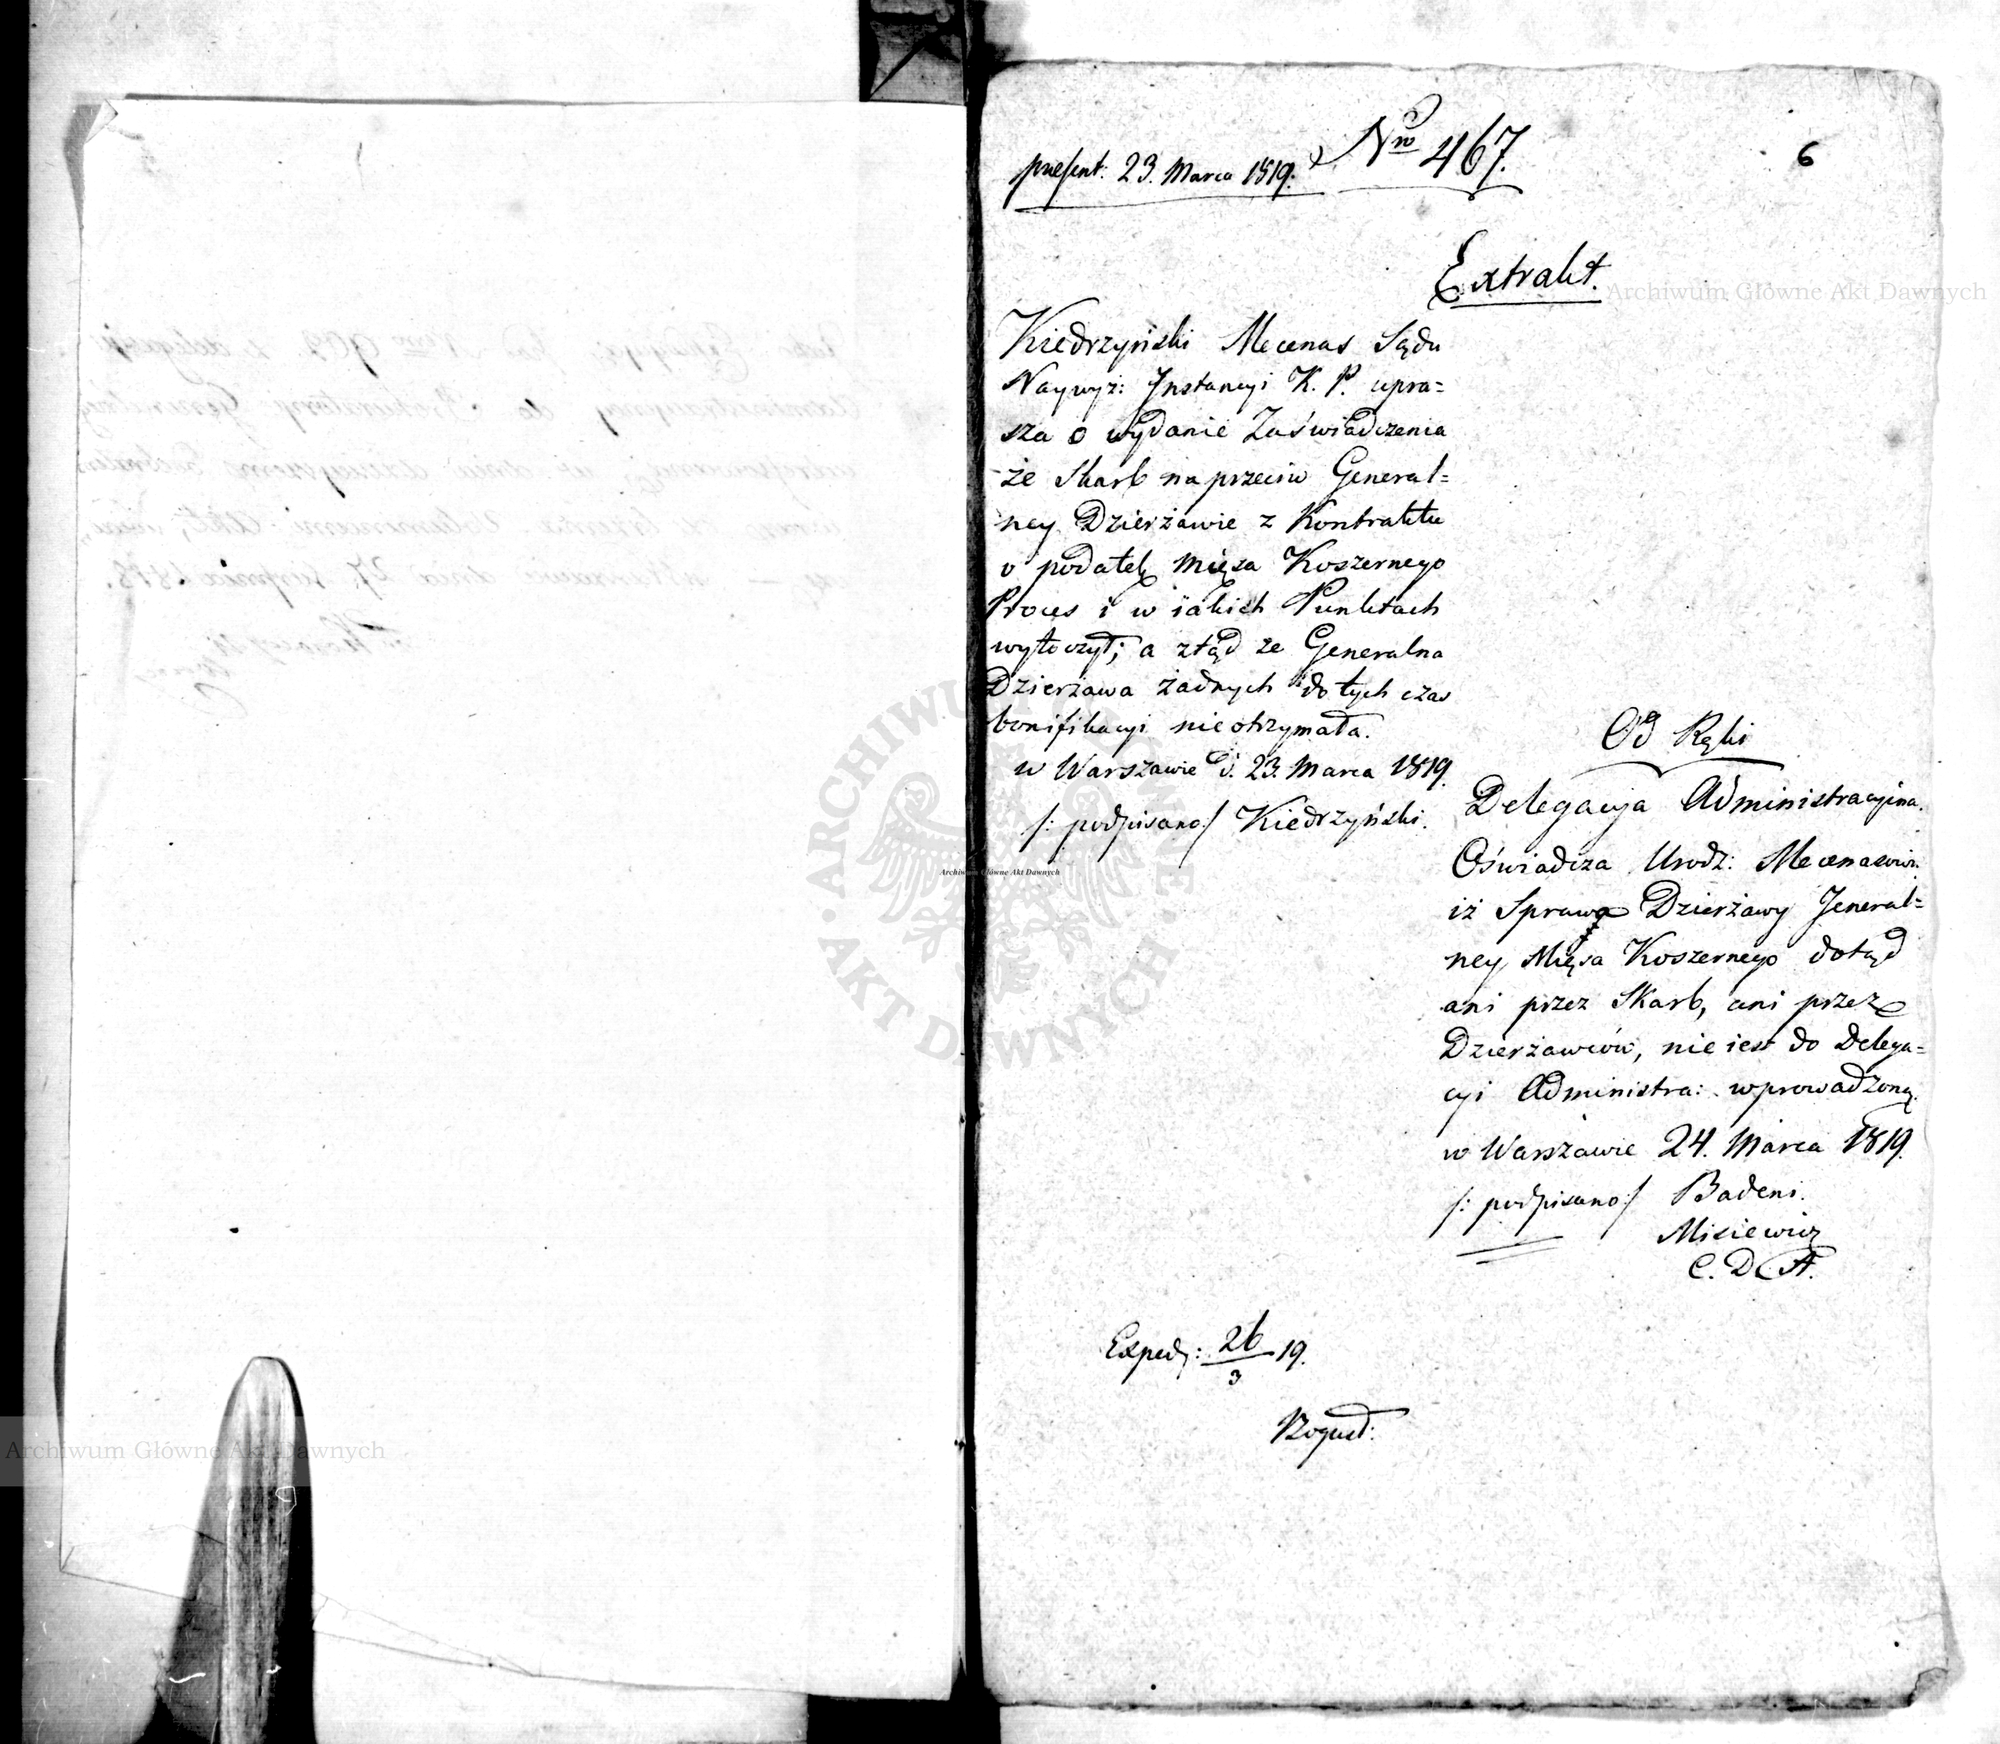 Nro 467.
6
present: 23. Marca 1819.
Extrakt.
Kiedrzyński Mecenas Sądu
Naywyż: Instancyi K. P. upra=
sza o wydanie Zaświadczenia
że Skarb naprzeciw General=
ney Dzierżawie z Kontraktu
o podatek Mięsa Koszernego
Proces i w iakich Punktach
wytoczył; a ztąd że Generalna
Dzierżawa żadnych do tych czas
bonifikacyi nie otrzymała.
w Warszawie d. 23. Marca 1819.
/: podpisano:/ Kiedrzyński.
Od Ręki
Delegacja Administracyina.
Oświadcza Urodz: Mecenasowi
iż Sprawa Dzierżawy Jeneral=
ney Mięsa Koszernego dotąd
ani przez Skarb, ani przez
Dzierżawców, nie iest do Delega=
cyi Administra: wprowadzoną.
w Warszawie 24. Marca 1819.
/: podpisano:/ Badeni.
Misiewicz
C. D. A.
Exped: 26/3 19.
Archiwum Główne Akt Dawnych
ARCHIWUM GŁÓWNE
AKT DAWNYCH
Archiwum Główne Akt Dawnych
Archiwum Główne Akt Dawnych